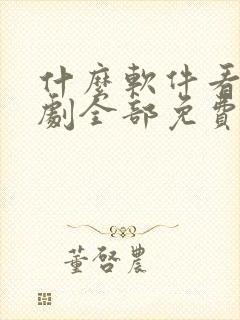 什麼軟件看
劇全部免費
董啓農